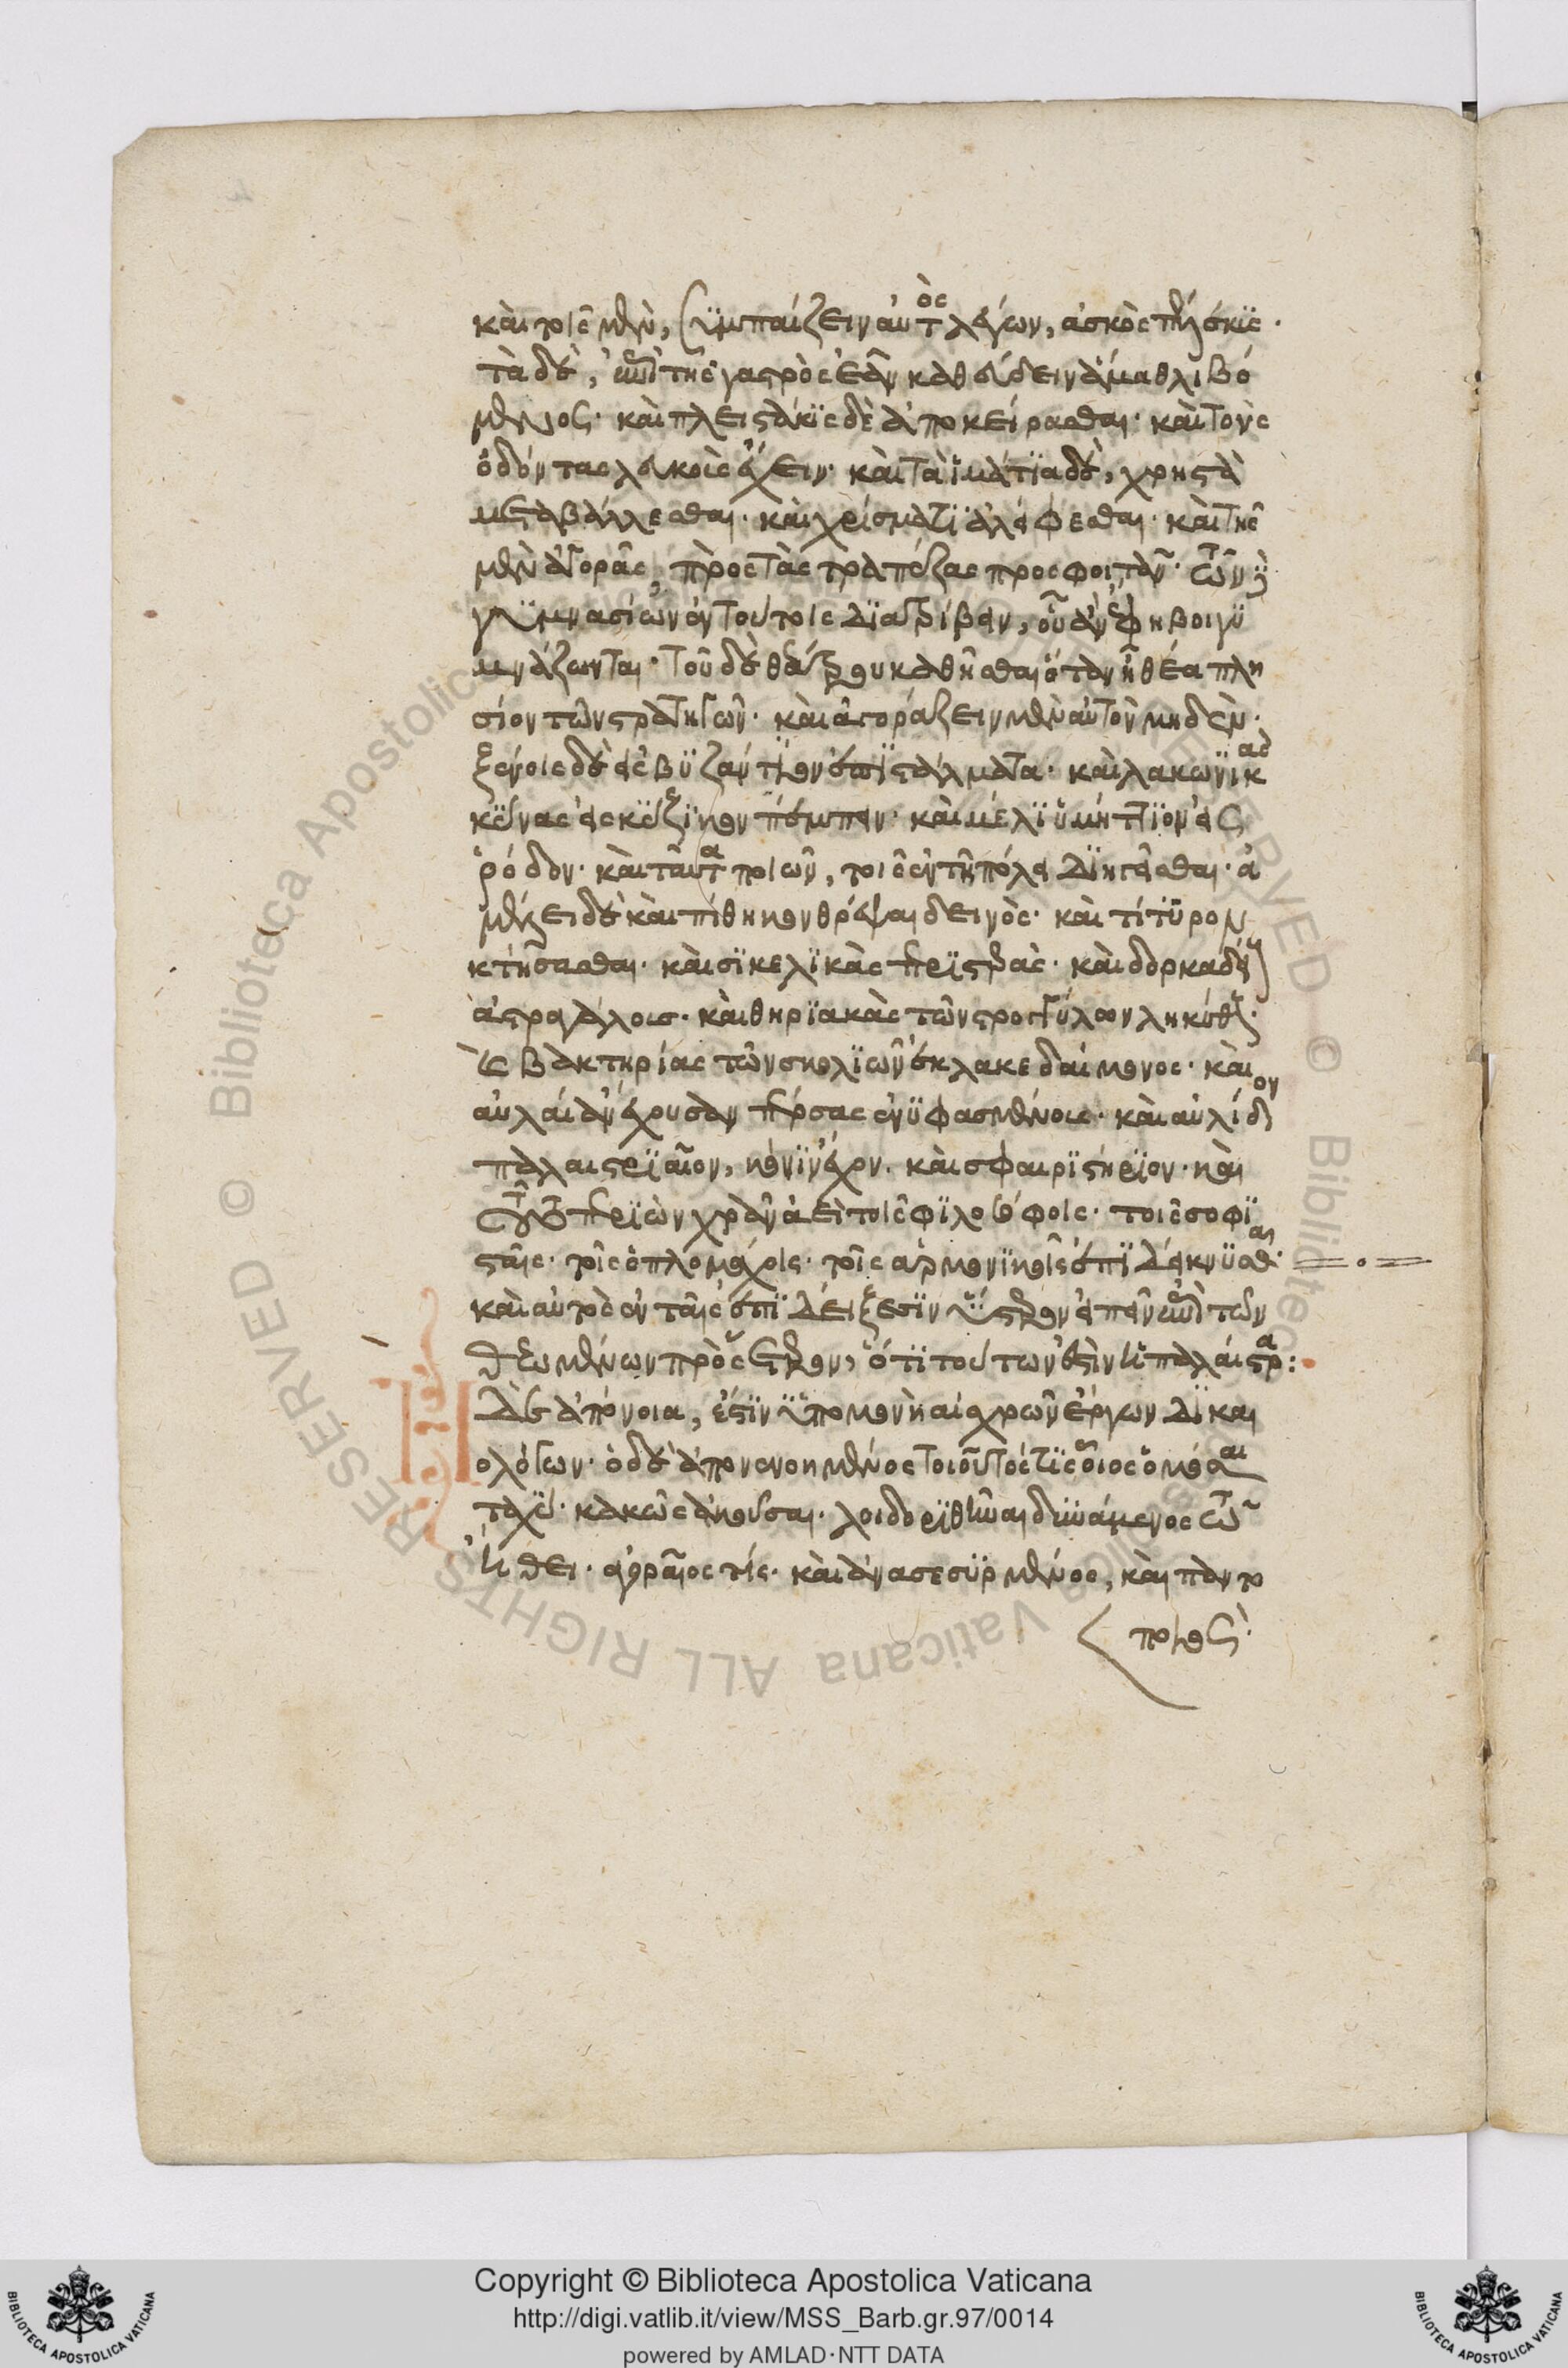 καὶ τοῖς μὲν, συμπαίζειν αὐτὸς λέγων, ἀσκὸς πέλεκυς·
τὰ δὲ, ἐπὶ τῆς γαστρὸς ἐᾶν καθεύδειν ἅμα θλιβό
μενος· καὶ πλειστάκις δὲ ἀποκείρασθαι· καὶ τοὺς
ὀδόντας λευκοὺς ἔχειν· καὶ τὰ ἱμάτια δὲ, χρηστὰ
μεταβάλλεσθαι· καὶ χρίσματι ἀλείφεσθαι· καὶ τῆς
μὲν ἀγορᾶς, πρὸς τὰς τραπέζας προσφοιτᾶν· τῶν δὲ
γυμνασίων ἐν τούτοις διατρίβειν, οὗ ἂν ἔφηβοι γυ
μνάζωνται· τοῦ δὲ θεάτρου καθῆσθαι ὅταν ᾖ θέα πλη
σίον τῶν στρατηγῶν· καὶ ἀγοράζειν μὲν αὐτὸν μηδὲν·
ξένοις δὲ εἰς βυζάντιον ἐπιστάλματα· καὶ λακωνικὰς
κύνας εἰς κύζικον πέμπειν· καὶ μέλι ὑμήττιον εἰς
ῥόδον· καὶ ταῦτα ποιῶν, τοῖς ἐν τῇ πόλει διηγεῖσθαι· ἀ
μέλει δὲ καὶ πίθηκον θρέψαι δεινὸς· καὶ τίτυρον
κτήσασθαι· καὶ σικελικὰς περιστερὰς· καὶ δορκαδείους
ἀστραγάλους· καὶ θηριακὰς τῶν στρογγύλων ληκύθους·
καὶ βακτηρίας τῶν σκολιῶν ἐκ λακεδαίμονος· καὶ
αὐλαίαν ἔχουσαν πέρσας ἐνυφασμένους· καὶ αὐλίδιον
παλαιστριαῖον, κόνιν ἔχον· καὶ σφαιριστήριον· καὶ
τοῦτο περιιὼν χρᾶν ἀεὶ τοῖς φιλοσόφοις· τοῖς σοφι
σταῖς· τοῖς ὁπλομάχοις· τοῖς ἁρμονικοῖς ἐπιδείκνυσθαι·
καὶ αὐτὸς ἐν ταῖς ἐπιδείξεσιν ὕστερον εἰπεῖν ἐπὶ τῶν
θεωμένων πρὸς ἕτερον, ὅτι τούτων ἐστὶν ἡ παλαίστρα:
Ἡ δέ ἐστιν ἀπόνοια, ἐστὶν ὑπομονὴ αἰσχρῶν ἔργων δικαι
ολόγων· ὁ δὲ ἀπονενοημένος τοιοῦτός τις οἷος ὀμόσαι
ταχὺ· κακῶς ἀκοῦσαι· λοιδορηθῆναι δυνάμενος τῷ
ἤθει· ἀγοραῖος τίς· καὶ ἀνασεσυρμένος, καὶ παντο
ποιὸς·
Copyright © Biblioteca Apostolica Vaticana
http://digi.vatlib.it/view/MSS_Barb.gr.97/0014
powered by AMLAD·NTT DATA